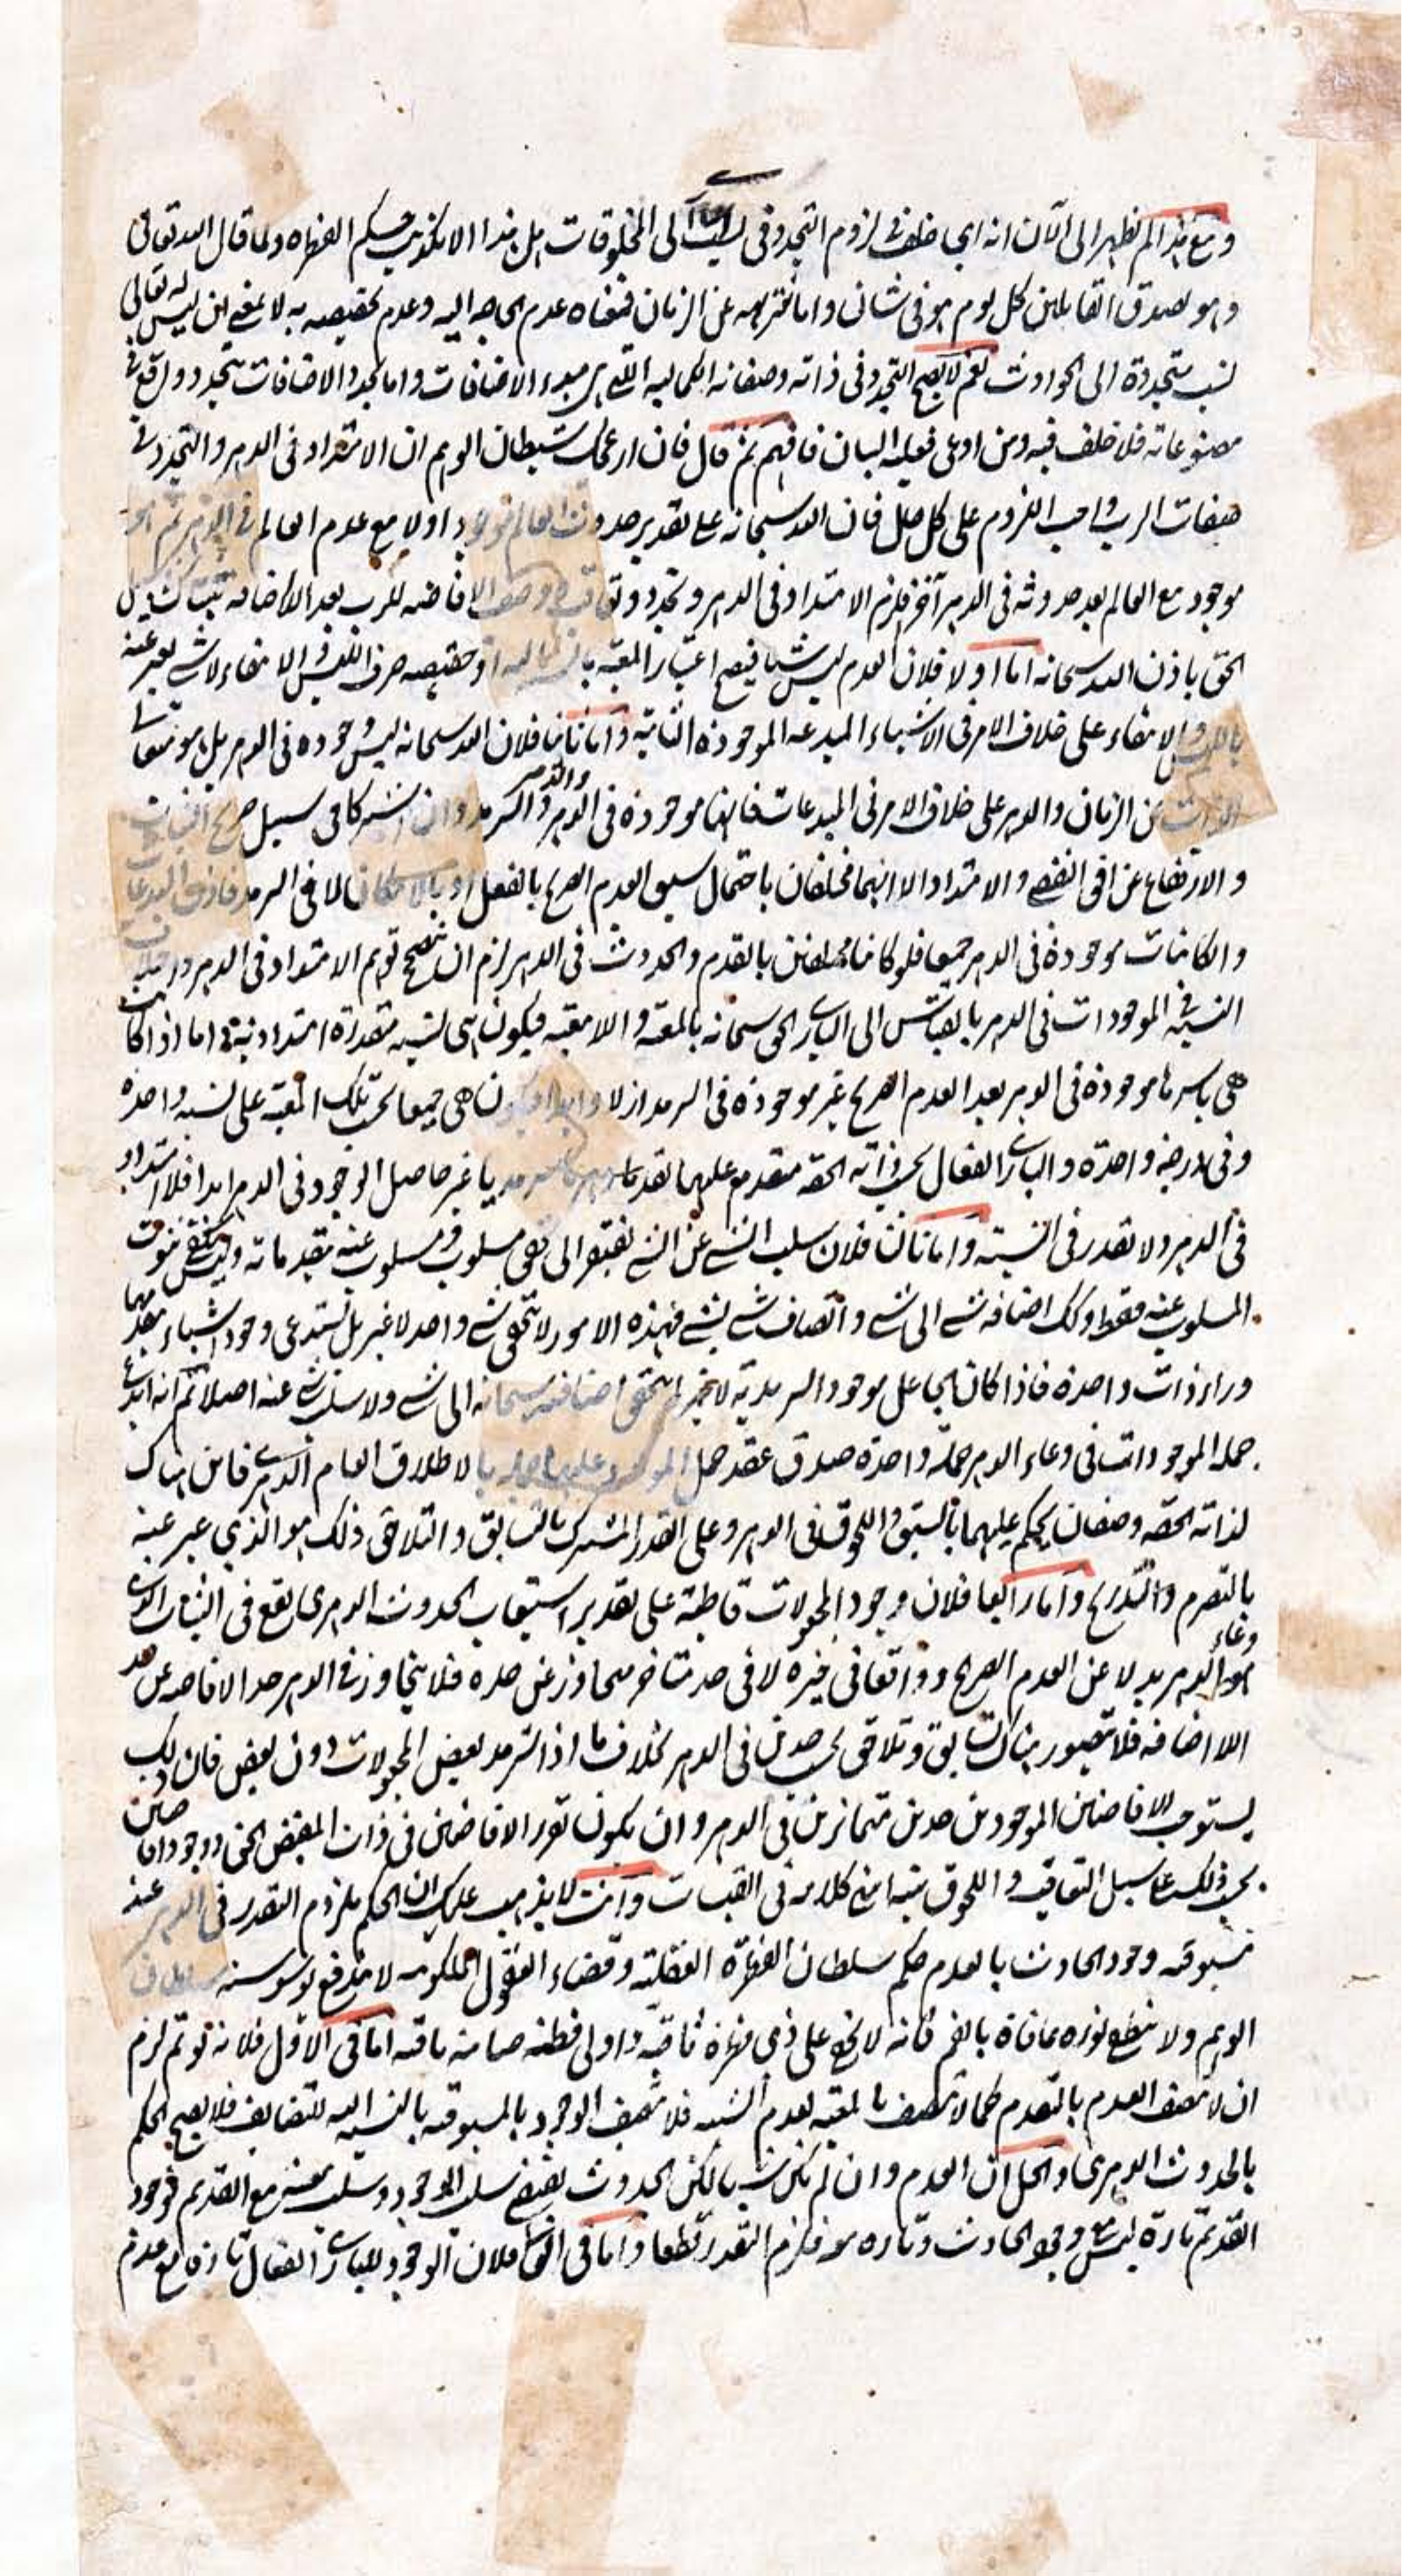 ومع هذا لم يظهر الى الآن انه اي خلف في لزوم التجدد في نسبته الى المخلوقات بل هذا الا تكذيب حكم الفهراه ولما قال الله تعالى
وهو اصدق القائلين كل يوم هو في شان واما تنزهه عن الزمان فمعناه عدم الحاجه اليه وعدم تخصيصه به لا بمعنى ان ليس له تعالى
نسب متجددة الى الحوادث نعم لا يصح التجدد في ذاته وصفاته الكماليه التي هي مبدء الاضافات واما تجدد الاضافات بتجدد واقع في
مصنوعاته فلا خلف فيه ومن ادعى فعليه البيان فافهم ثم قال فان ازعجك شيطان الوهم ان الامتداد في الدهر والتجدد في
صفات الرب واجب اللزوم على كل حال فان الله سبحانه على تقدير حدوث العالم موجود اولا مع عدم العالم في الدهر ثم هو
موجود مع العالم بعد حدوثه في الدهر آخر فلزم الامتداد في الدهر وتجدد وتعاقب وصف الافاضه للرب بعد اللااضافه
الحق باذن الله سبحانه اما اولا فلان العدم ليس شيئا فيصح اعتبار المعيه بالنسبة اليه اذ حقيقته صرف الليس والانتفاء ولا شي يعبر عنه
بالليس والانتفاء على خلاف الامر في الاشياء المبدعه الموجوده الثابته واما ثانيا فلان الله سبحانه ليس وجوده في الدهر بل هو متعالى
الذات عن الزمان والدهر على خلاف الامر في المبدعات فانها موجوده في الدهر والدهر والسرمد وان اشتركا في سبيل صريح الثبات
والارتفاع عن افق التقضي والامتداد الا انهما مختلفان باحتمال سبق العدم الصريح بالفعل او بالامكان لا في السرمد فاذن المبدعات
والكائنات موجوده في الدهر جميعا فلو كانتا مختلفتين بالقدم والحدوث في الدهر لزم ان يتصحح توهم الامتداد في الدهر
النسبة في الموجودات في الدهر بالقياس الى الباري الحق سبحانه بالمعيه واللامعيه فيكون هي نسبه متقدرة امتدادية واما اذا كانت
هي باسرها موجوده في الدهر بعد العدم الصريح غير موجوده في السرمد ازلا وابدا فيكون هي جميعا بحسب تلك المعية على نسبه واحده
وفي درجه واحدة والباري الفعال بحسب ذاته الحقه متقدم عليها تقدما سرمديا غير حاصل الوجود في الدهر ابدا فلا امتداد
في الدهر ولا تقدر في النسبة واما ثالثا فلان سلب الشي عن الشي يفتقر الى تحقق مسلوب ومسلوب عنه بتقدم ذاته وليس يكفي ثبوت
المسلوب عنه فقط وكك اضافه شي الى شي واتصاف شي بشي فهذه الامور لا تتحقق بشي واحد لا غير بل تستدعي وجود اشياء
وراء ذات واحدة فاذا كان الجاعل موجودا بالسرمدية لا غير لم يتحقق اضافته سبحانه الى شي ولا سلب شي عنه اصلا ثم انه ابدع
جملة الموجودات في وعاء الدهر جملة واحدة صدق عقد حمل الموجود عليها بالاطلاق العام الدهري فاين هناك
لذاته الحقه وصفان يحكم عليهما بالسبق واللحوق في الدهر وعلى القدر المشترك بالتسابق والتلاحق وذلك هو الذي عبر عنه
بالتصرم والتدريج واما رابعا فلان وجود المجعولات قاطبة على تقدير استيعاب الحدوث الدهري يقع في
وعاء
الدهر بدلا عن العدم الصريح وواقعا في حيزه لا في حد متاخر متجاوز عن حده فلا يتجاوز في الدهر حد الافاضه عن حد
اللااضافه فلا يتصور هناك تسابق وتلاحق بحسب حدين في الدهر بخلاف ما اذا تسرمد بعض المجعولات دون بعض فان ذلك
يستوجب الافاضتين الموجودين حدين متمايزين في الدهر وان يكون تقرر الافاضتين في ذات المفيض الحق ووجود افاضتين
بحسب ذلك على سبيل التعاقب واللحوق انتهى كلامه في القبسات وانت لا يذهب عليك ان الحكم بلزوم التقدر في الدهر عند
مسبوقيه وجود الحادث بالعدم حكم سلطان الفطرة العقليه وقضاء العقول الملكوتيه لا يندفع بوسوسة سلطان
الوهم ولا ينطفي نوره بمنافاة بالفم فانه لا يخفى على ذي فطرة ثاقبه واولي فطنه صائبه ما فيه اما في الاول فلانه لو تم لزم
ان لا يتصف العدم بالتقدم كما لا يتصف بالمعيه لعدم الشيئيه فلا يتصف الوجود بالمسبوقيه بالنسبة اليه للتضايف فلا يصح الحكم
بالحدوث الدهري والحل ان العدم وان لم يكن شيئا لكن الحدوث يقتضي سلب الوجود وسلب معيته مع القديم فوجود
القديم تارة ليس معه وجود الحادث وتاره معه فلزم التقدر قطعا واما في الثاني فلان الوجود للباري الفعال تارة مع عدم